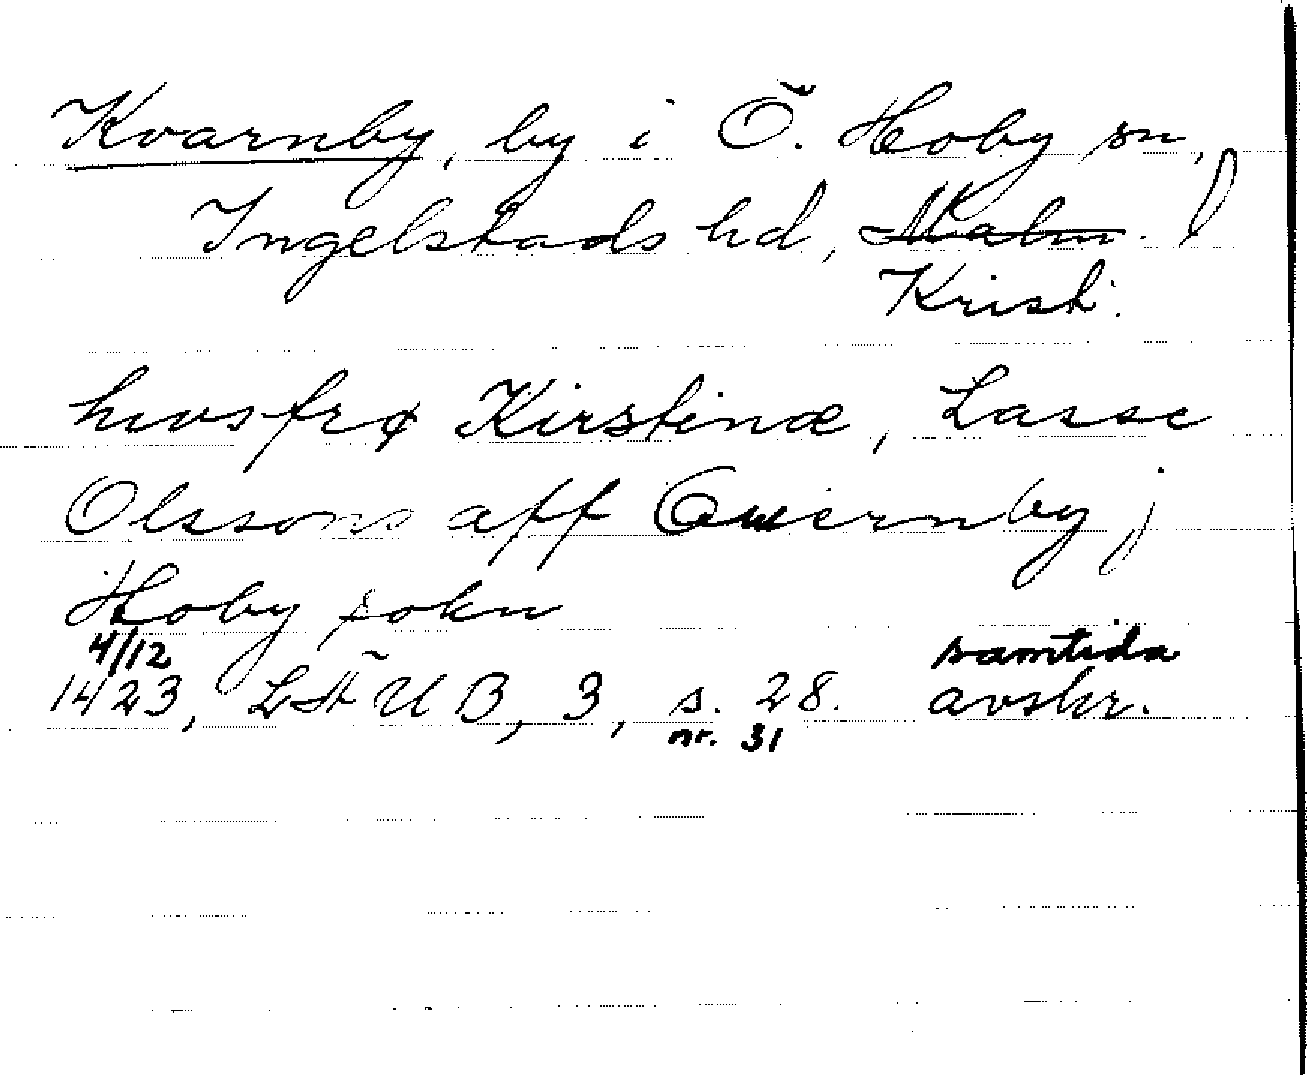 Kvarnby, by i Ö. Hoby sn,
Ingelstads hd, Malm.
Krist.
hwsfrø Kirstinæ, Lasse
Olssons aff Qwernby j
Hoby sokn
4/12 samtida
1423, LÄUB, 3, s. 28. avskr.
nr. 31